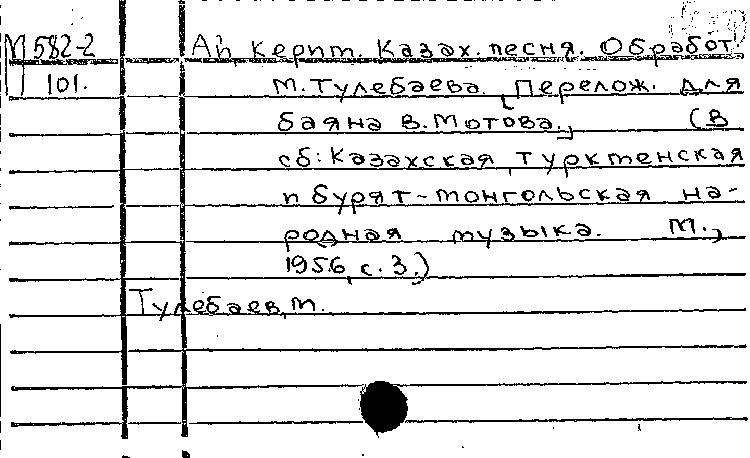 М582-2 Ай, Керім. Казах. песня. Обработ.
101. М. Тулебаева. [Перелож. для
баяна В. Мотова.] (В
сб: Казахская, туркменская
и бурят-монгольская на-
родная музыка. М.,
1956, с. 3.)
Тулебаев, М.